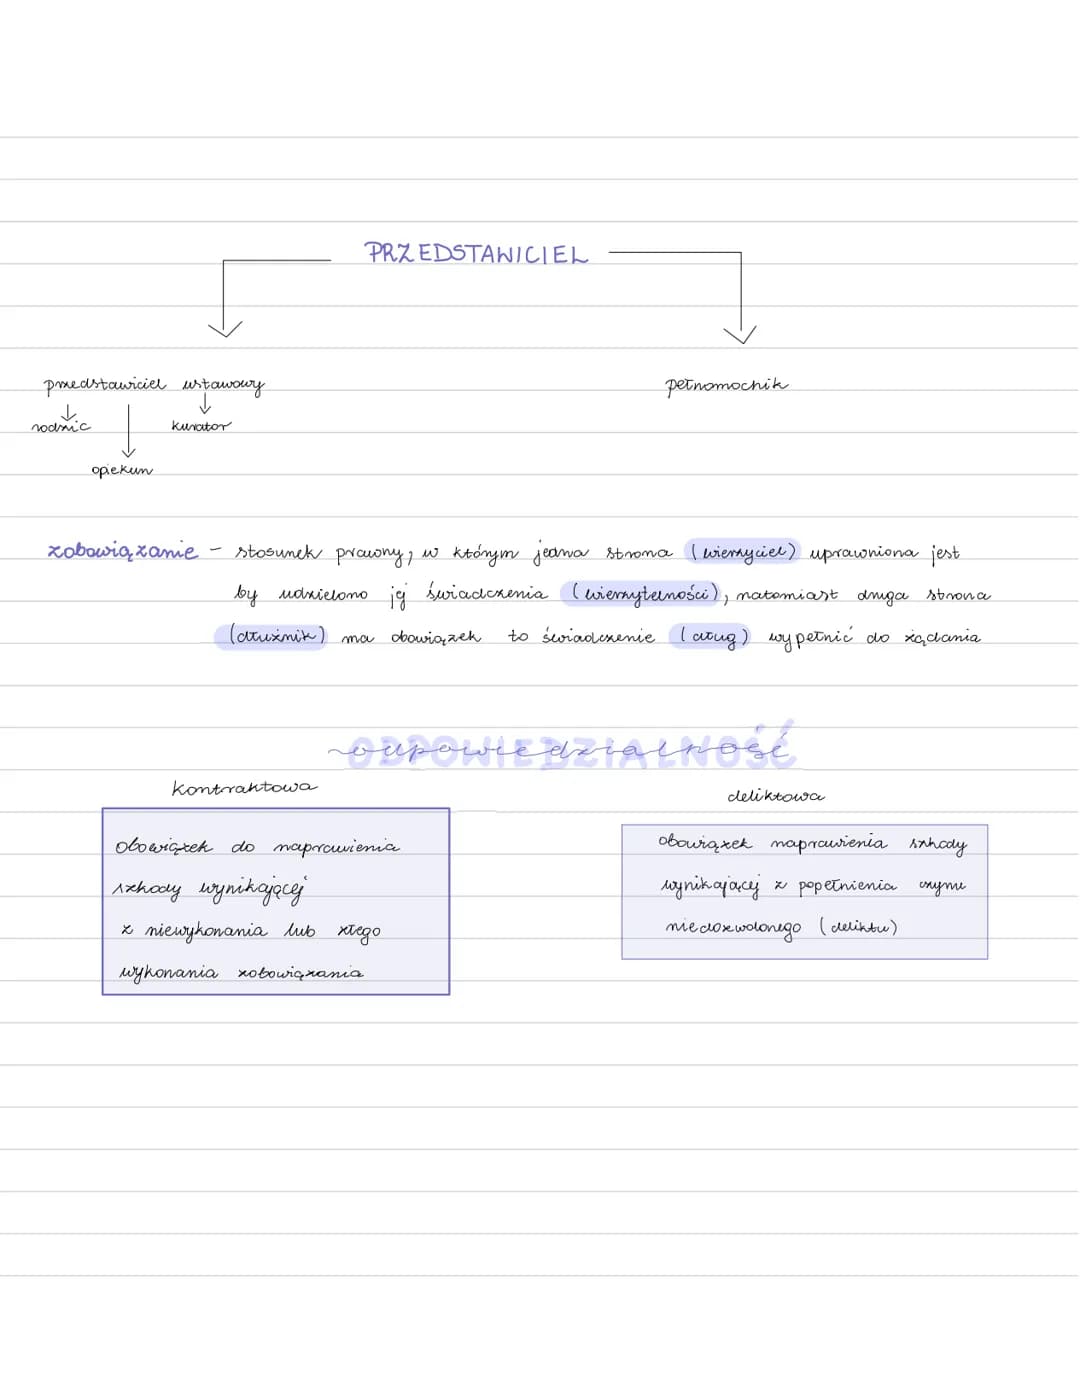 PRZEDSTAWICIEL
przedstawiciel ustawowy
pełnomocnik
rodzic
kurator
opiekun
zobowiązanie - stosunek prawny, w którym jedna strona (wierzyciel) uprawniona jest
by udzielono jej świadczenia (wierzytelności), natomiast druga strona
(dłużnik) ma obowiązek to świadczenie (dług) wypełnić do żądania
odpowiedzialność
ODPOWIEDZIALNOŚĆ
kontraktowa
deliktowa
obowiązek do naprawienia
szkody wynikającej
z niewykonania lub złego
wykonania zobowiązania
obowiązek naprawienia szkody
wynikającej z popełnienia czynu
niedozwolonego (deliktu)